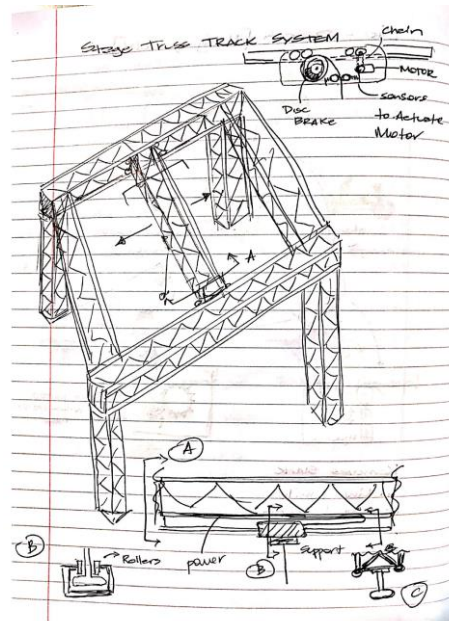 Stage Truss TRACK SYSTEM
chain
MOTOR
DISC
BRAKE
sensors
to Actuate
Motor
A
A
B
Rollers
power
B
Support
C